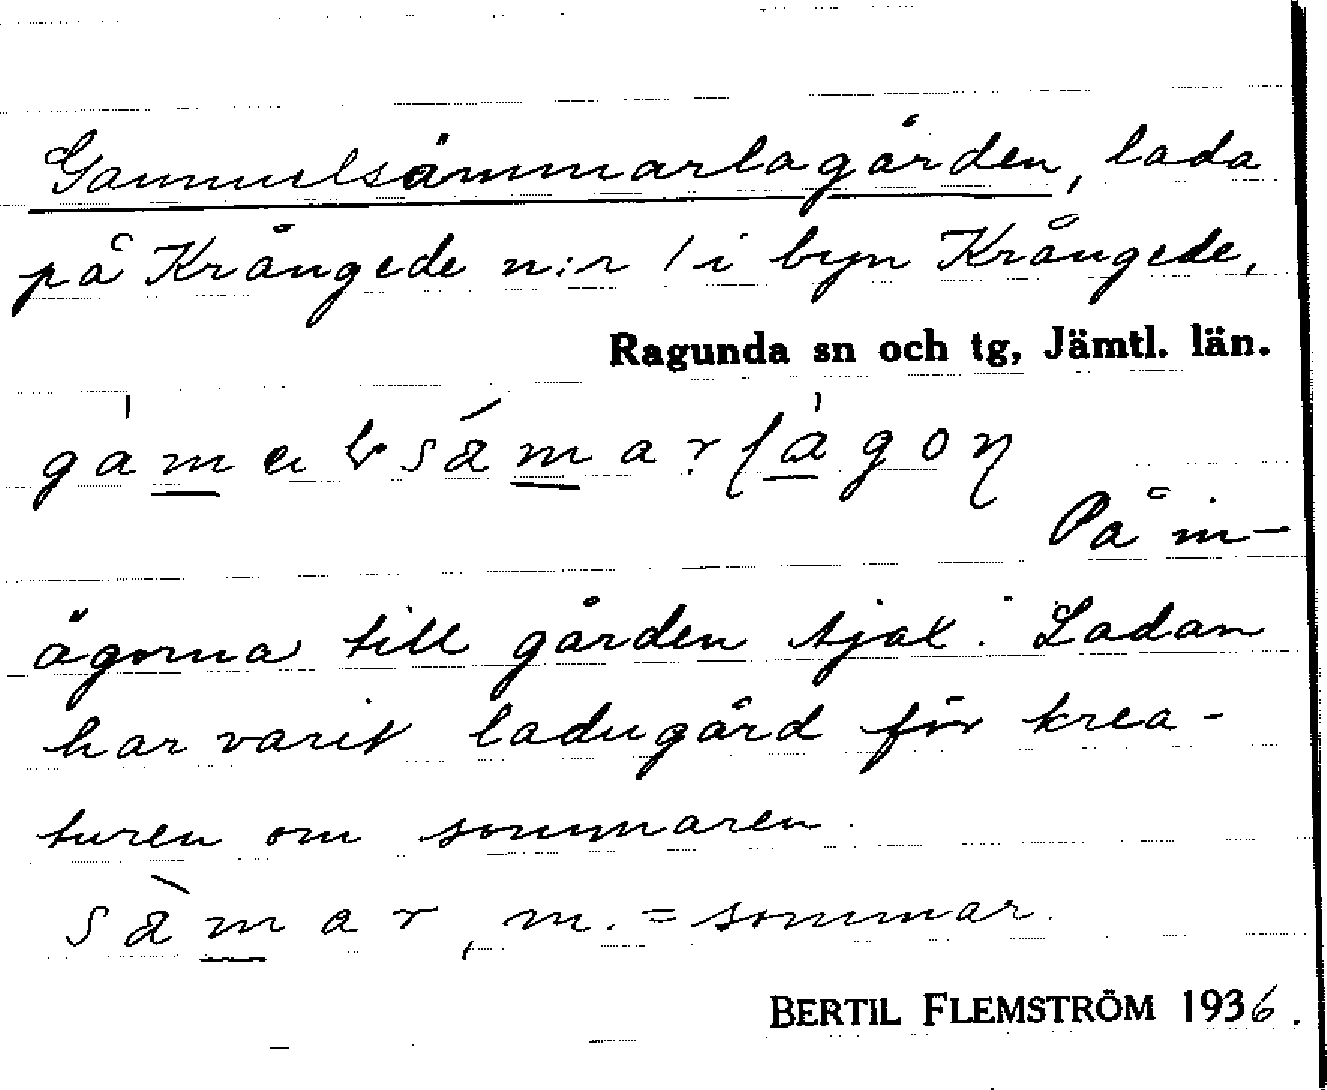 Gammelsämmarlagården, lada
på Krångede n:r 1 i byn Krångede,
Ragunda sn och tg, Jämtl. län.
På in-
ägorna till gården själ. Ladan
har varit ladugård för krea-
turen om sommaren.
sàmar, m. = sommar.
BERTIL FLEMSTRÖM 1936.